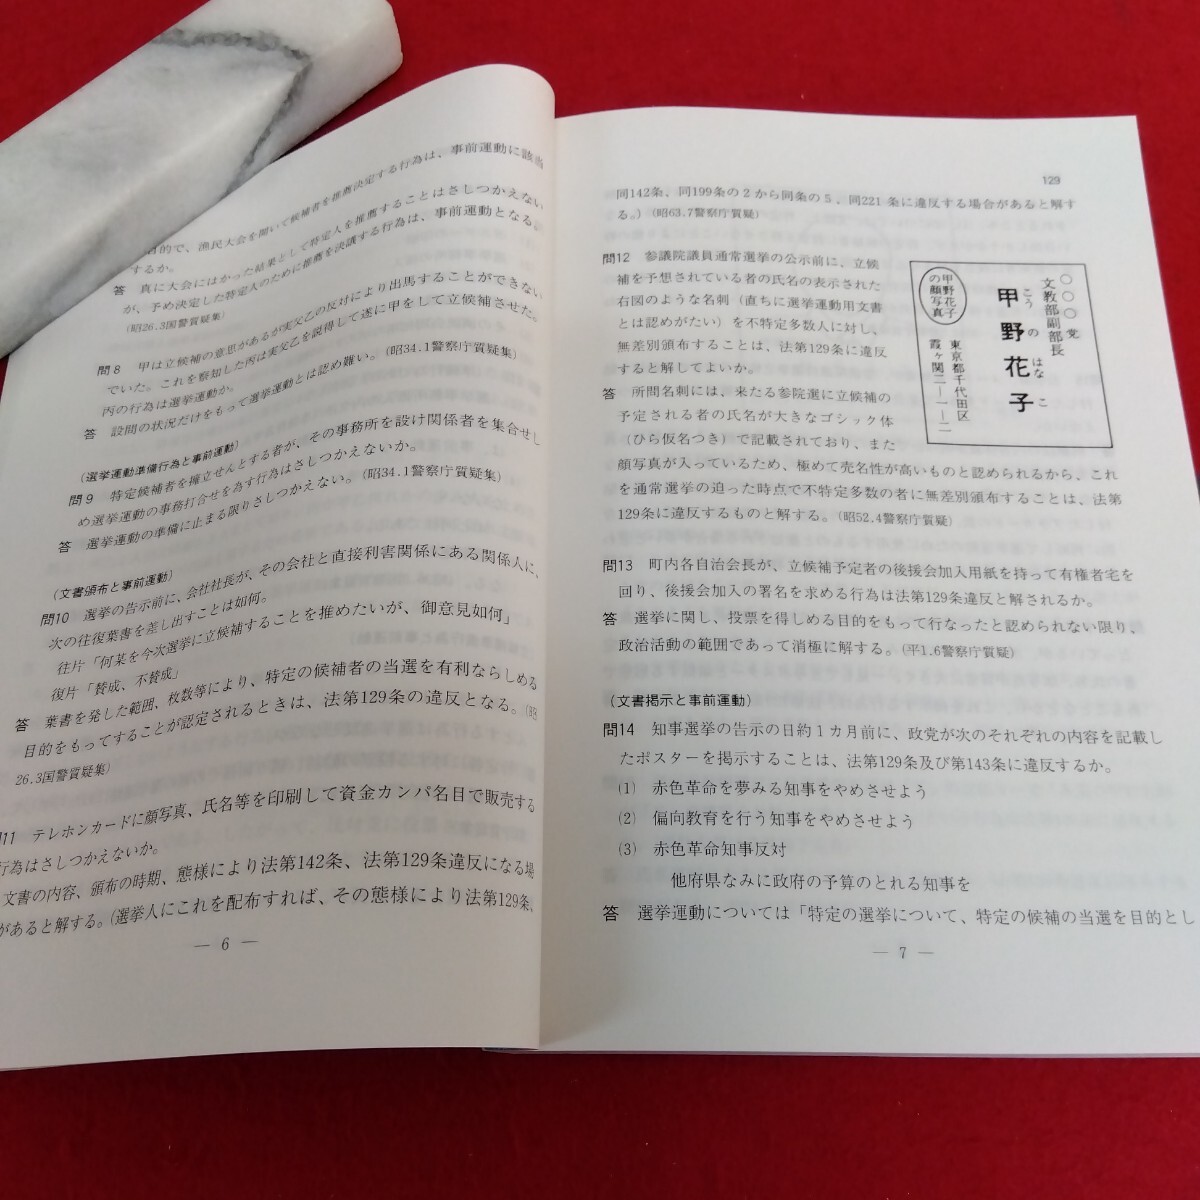 行為は、事前運動に該当
目的で、漁民大会を開いて候補者を推薦決定する
するか。
答 真に大会にはかった結果として特定人を推薦することはさしつかえない
が、予め決定した特定人のために推薦を決議する行為は、事前運動となる
(昭26.3国警質疑集)
問8 甲は立候補の意思があるが実父乙の反対により出馬することができない
でいた。これを察知した丙は実父乙を説得して遂に甲をして立候補させた。
丙の行為は選挙運動か。
答 設問の状況だけをもって選挙運動とは認め難い。(昭34.1警察庁質疑集)
(選挙運動準備行為と事前運動)
問9 特定候補者を擁立せんとする者が、その事務所を設け関係者を集合せし
め選挙運動の事務打合せを為す行為はさしつかえないか。
答 選挙運動の準備に止まる限りさしつかえない。(昭34.1警察庁質疑集)
(文書頒布と事前運動)
問10 選挙の告示前に、会社社長が、その会社と直接利害関係にある関係人に、
次の往復葉書を差し出すことは如何。
往片「何某を今次選挙に立候補することを推めたいが、御意見如何」
復片「賛成、不賛成」
答 葉書を発した範囲、枚数等により、特定の候補者の当選を有利ならしめる
目的をもってすることが認定されるときは、法第129条の違反となる。(昭
26.3国警質疑集)
11 テレホンカードに顔写真、氏名等を印刷して資金カンパ名目で販売する
行為はさしつかえないか。
文書の内容、頒布の時期、態様により法第142条、法第129条違反になる場
があると解する。(選挙人にこれを配布すれば、その態様により法第129条、
— 6 —
129
同142条、同199条の2から同条の5、同221条に違反する場合があると解す
る。)(昭63.7警察庁質疑)
問12 参議院議員通常選挙の公示前に、立候
補を予想されている者の氏名の表示された
右図のような名刺(直ちに選挙運動用文書
とは認めがたい)を不特定多数人に対し、
無差別頒布することは、法第129条に違反
すると解してよいか。
答 所問名刺には、来たる参院選に立候補の
予定される者の氏名が大きなゴシック体
(ひら仮名つき)で記載されており、また
顔写真が入っているため、極めて売名性が高いものと認められるから、これ
を通常選挙の迫った時点で不特定多数の者に無差別頒布することは、法第
129条に違反するものと解する。(昭52.4警察庁質疑)
〇〇〇党
文教部副部長
こうのはなこ
甲野花子
東京都千代田区
霞ヶ関二—一—二
甲野花子
の顔写真
問13 町内各自治会長が、立候補予定者の後援会加入用紙を持って有権者宅を
回り、後援会加入の署名を求める行為は法第129条違反と解されるか。
答 選挙に関し、投票を得しめる目的をもって行なったと認められない限り、
政治活動の範囲であって消極に解する。(平1.6警察庁質疑)
(文書掲示と事前運動)
問14 知事選挙の告示の日約1カ月前に、政党が次のそれぞれの内容を記載し
たポスターを掲示することは、法第129条及び第143条に違反するか。
(1) 赤色革命を夢みる知事をやめさせよう
(2) 偏向教育を行う知事をやめさせよう
(3) 赤色革命知事反対
他府県なみに政府の予算のとれる知事を
答 選挙運動については「特定の選挙について、特定の候補の当選を目的とし
— 7 —